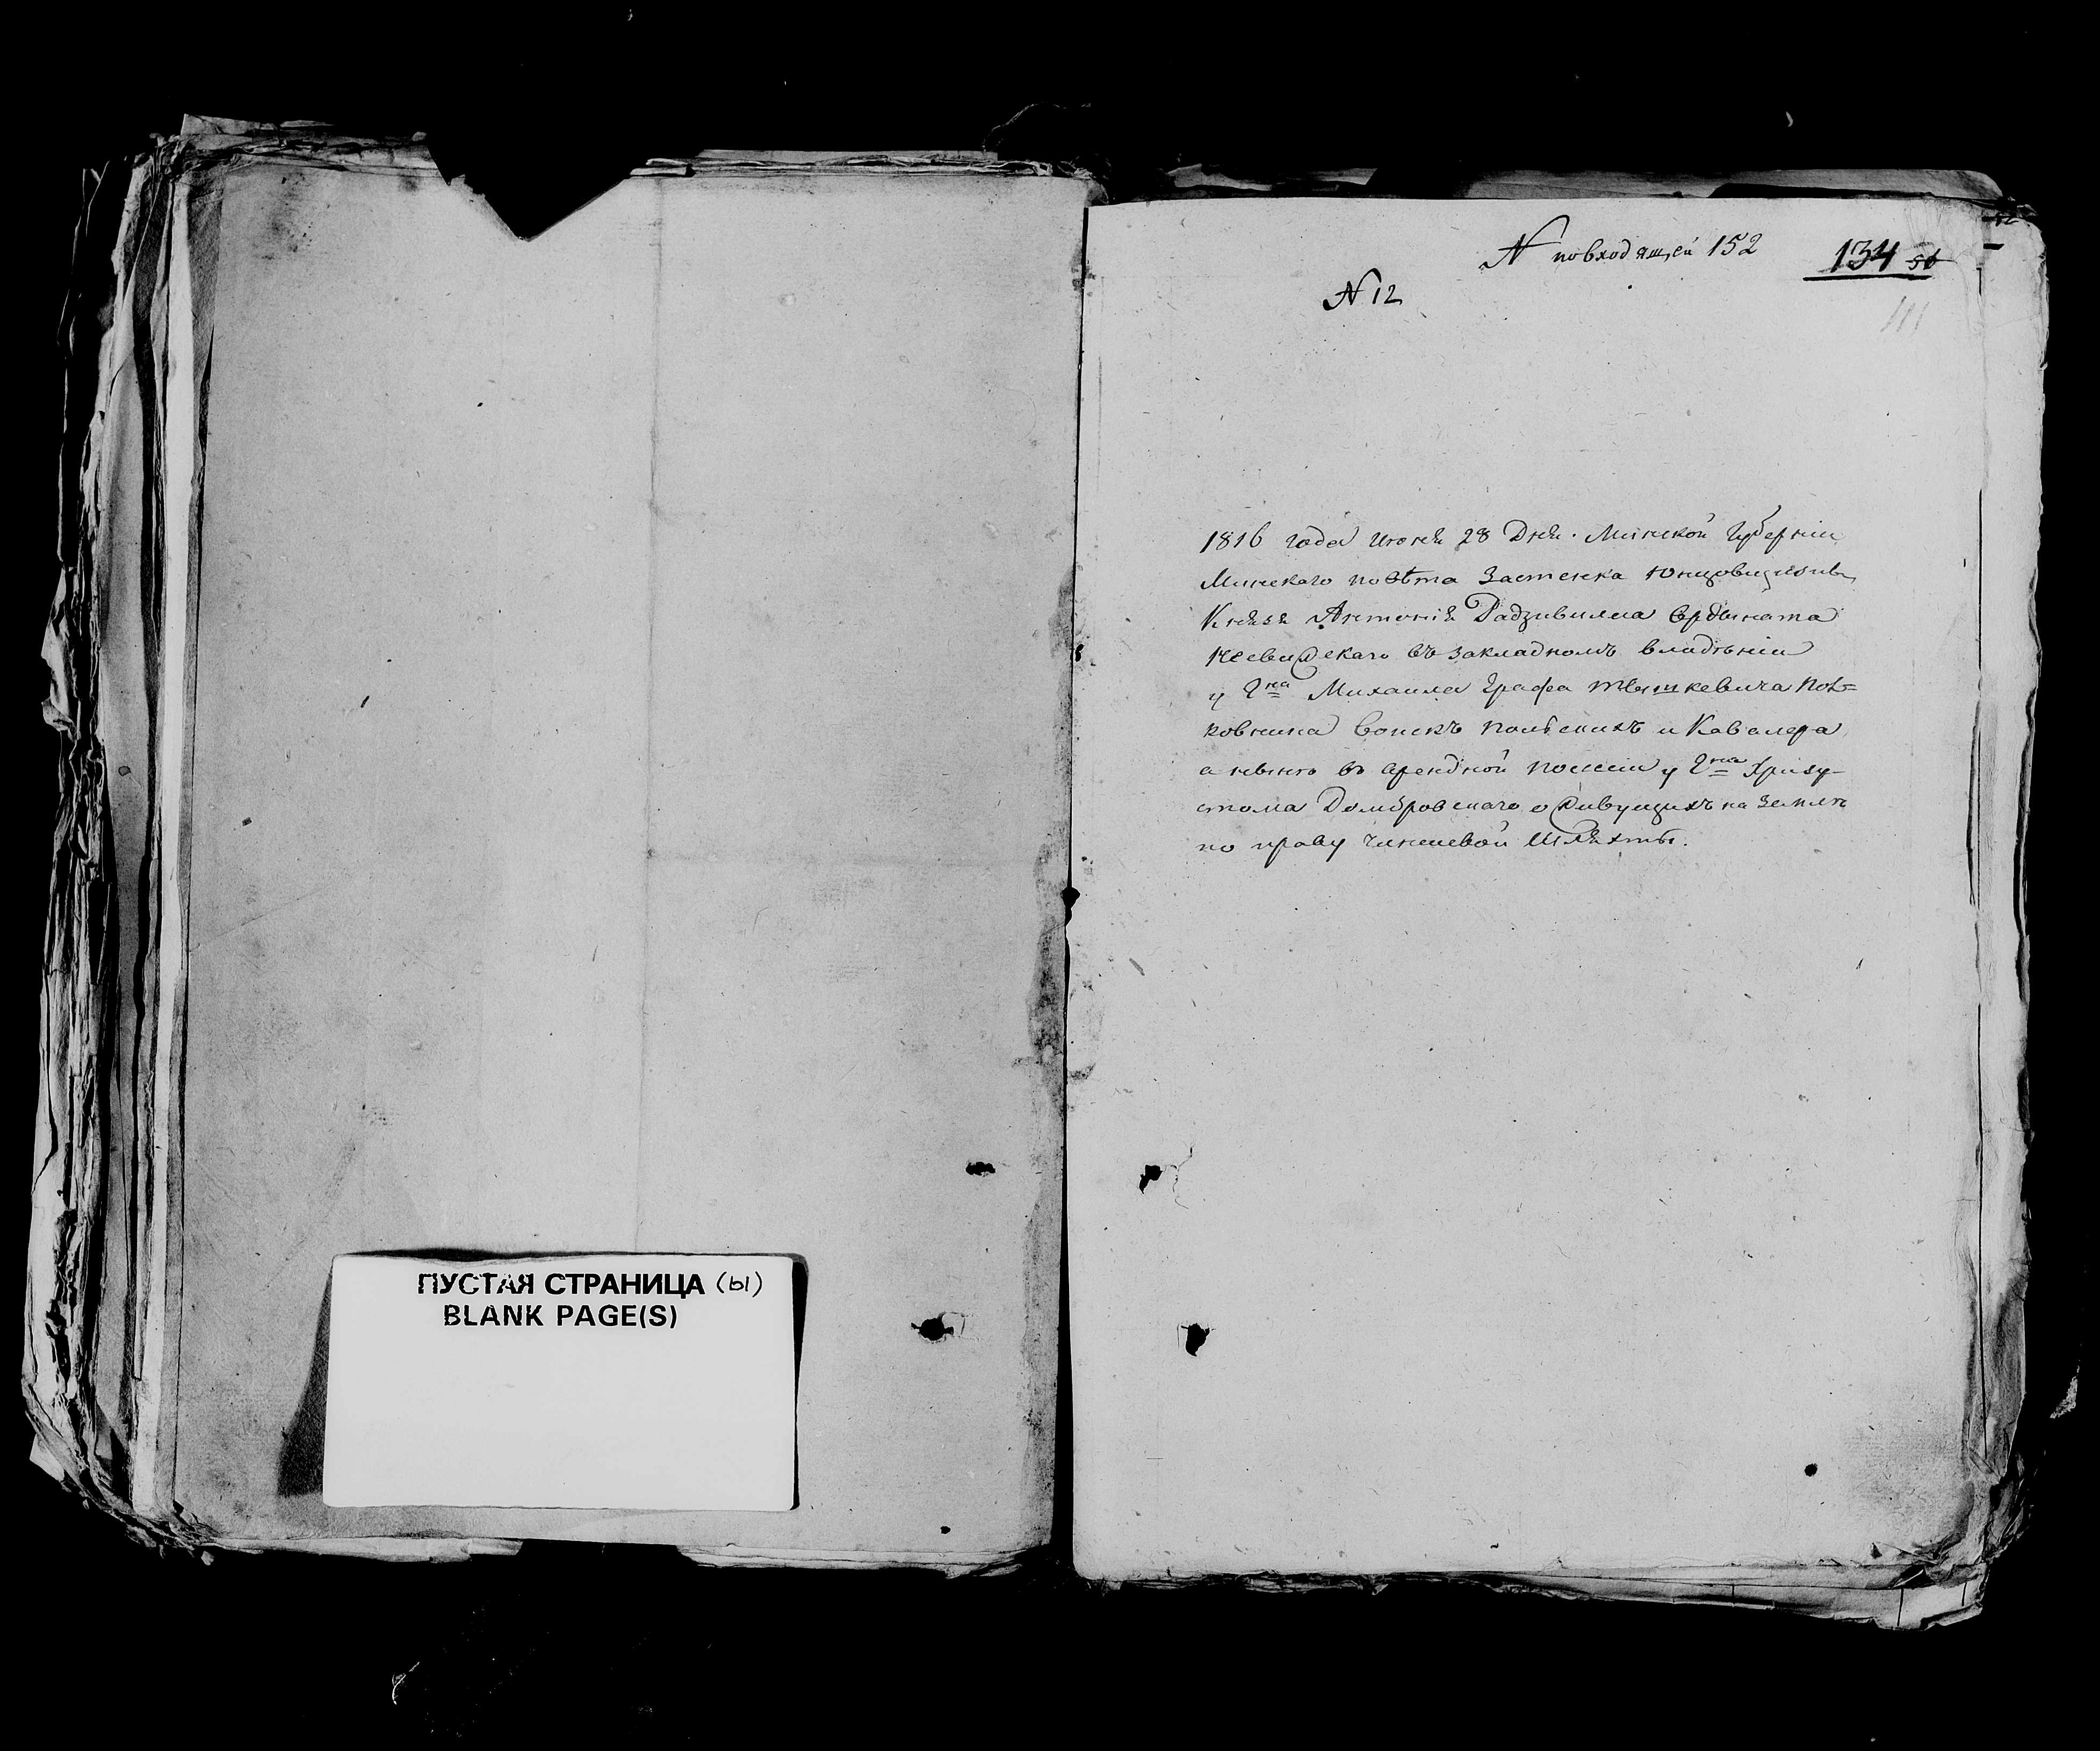 ПУСТАЯ СТРАНИЦА (Ы)
BLANK PAGE(S)
N повходящей 152
134 56
N 12
111
1816 года июня 28 Дня. Минской Губерніи
Минскаго повѣта Застенка
Князя Антонія Радзивилла Ордыната
въ закладномъ владѣніи
у Гна Михаила Графа Тышкевича Пол=
ковника Войскъ Польскихъ и Кавалера
а нынѣ въ арендной посесіи у Гна Хризу-
стома Домбровскаго о живущихъ на Землѣ
по праву чиншевой Шляхты.